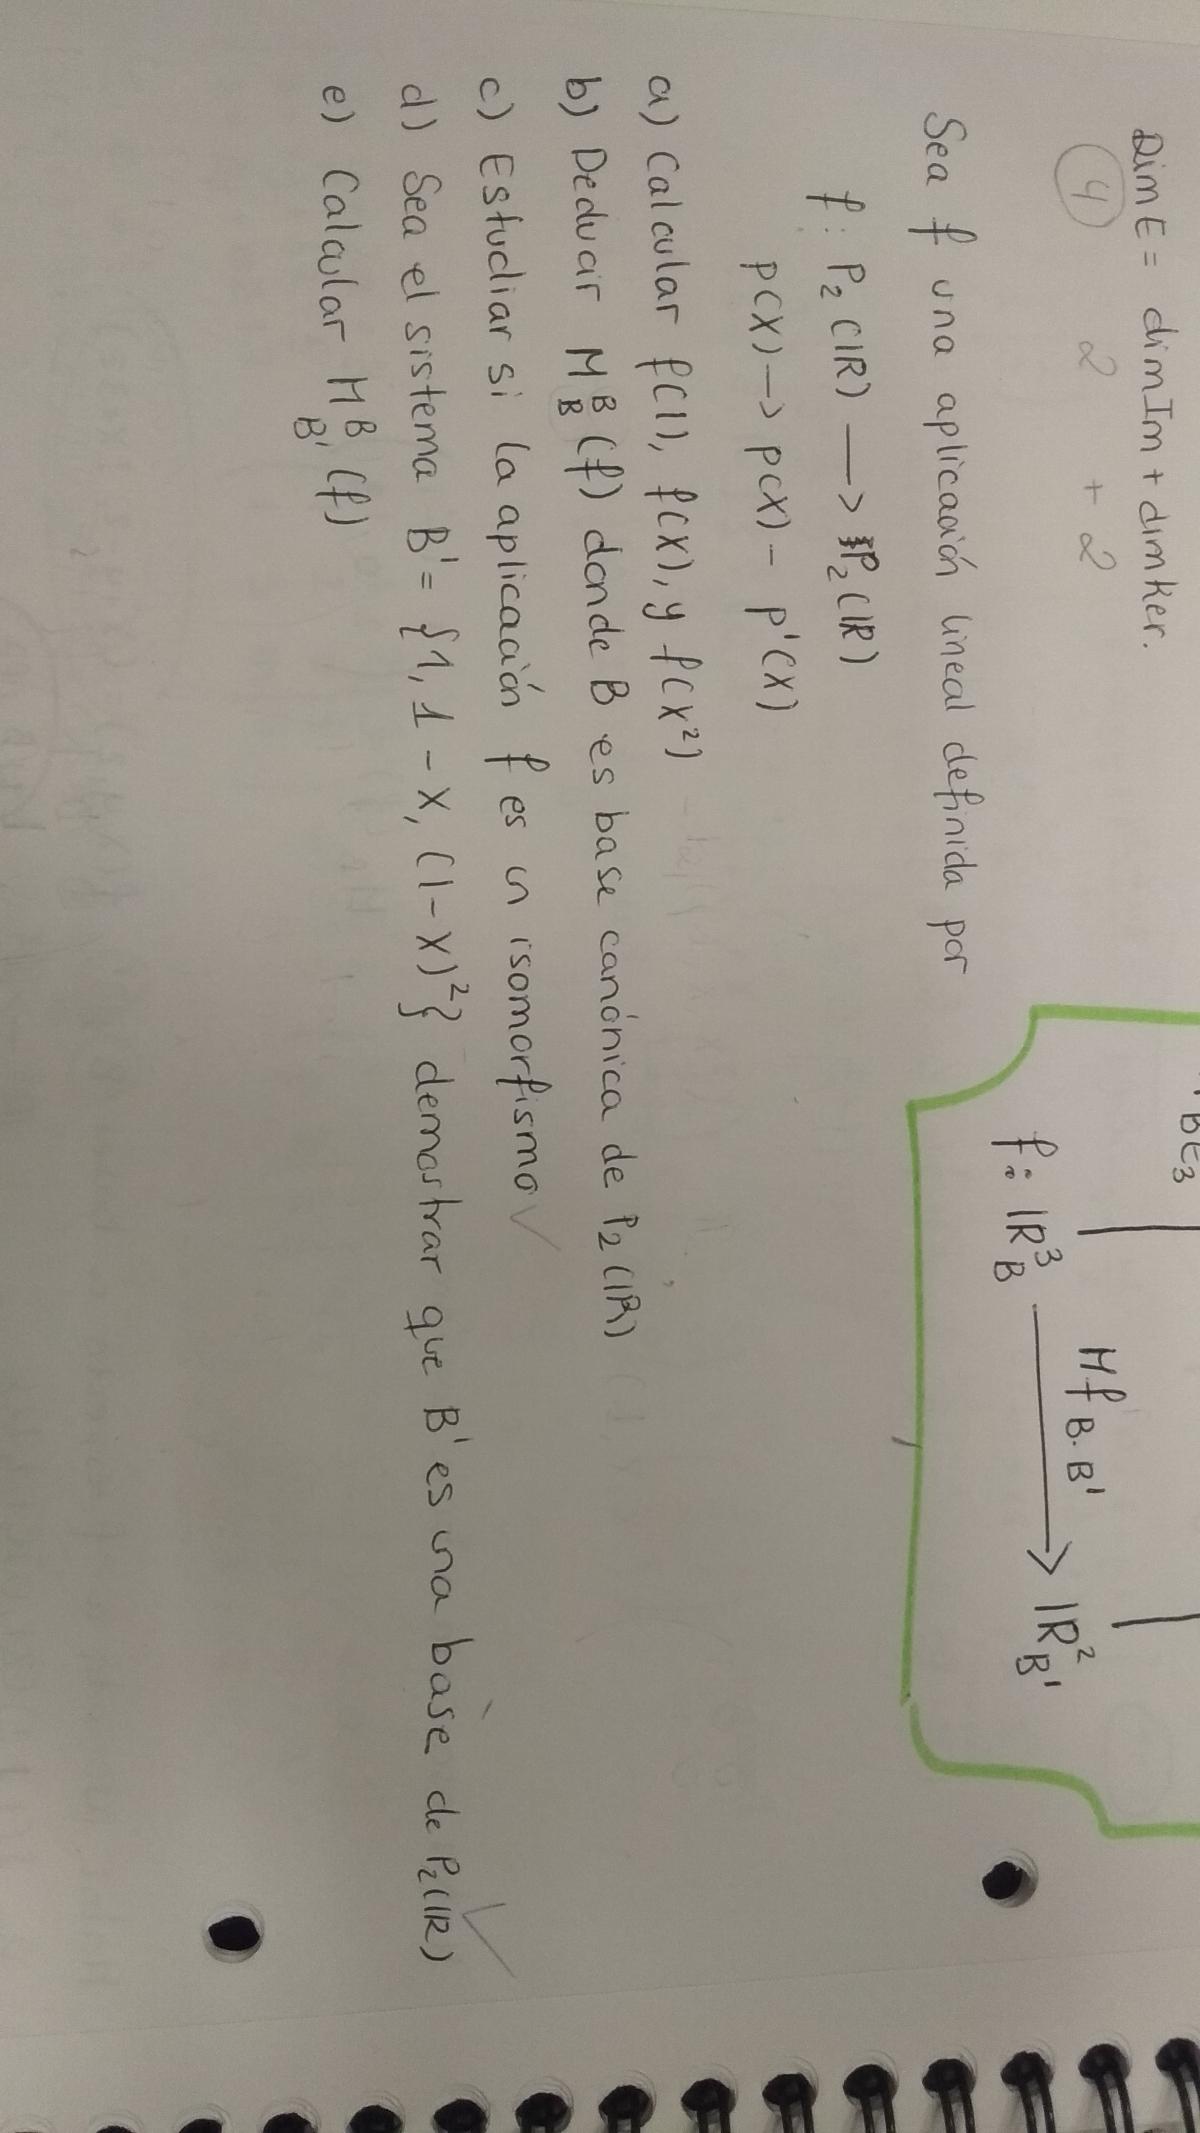 DimE = dimIm + dimKer.
4 2 + 2
BE3
Mf B·B'
f: ℝ³B ⟶ ℝ²B'
Sea f una aplicación lineal definida por
f: P₂(ℝ) ⟶ P₂(ℝ)
p(x) → p(x) - p'(x)
a) Calcular f(1), f(x), y f(x²)
b) Deducir M^B_B (f) donde B es base canónica de P₂(ℝ)
c) Estudiar si la aplicación f es un isomorfismo ✓
d) Sea el sistema B' = {1, 1 - x, (1-x)²} demostrar que B' es una base de P₂(ℝ) ✓
e) Calcular M^B_B' (f)